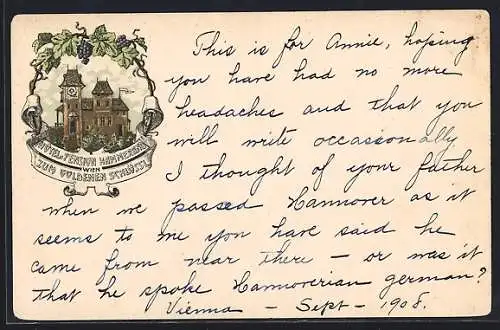 This is for Annie, hoping
you have had no more
headaches and that you
will write occassonally
I thought of your father
when we passed Hannover as it
seems to me you have said he
came from near there – or was it
that he spoke Hannoverian german?
Vienna – Sept – 1908.
HOTEL & PENSION HAMMERAND
WIEN
ZUM GOLDENEN SCHLÜSSL